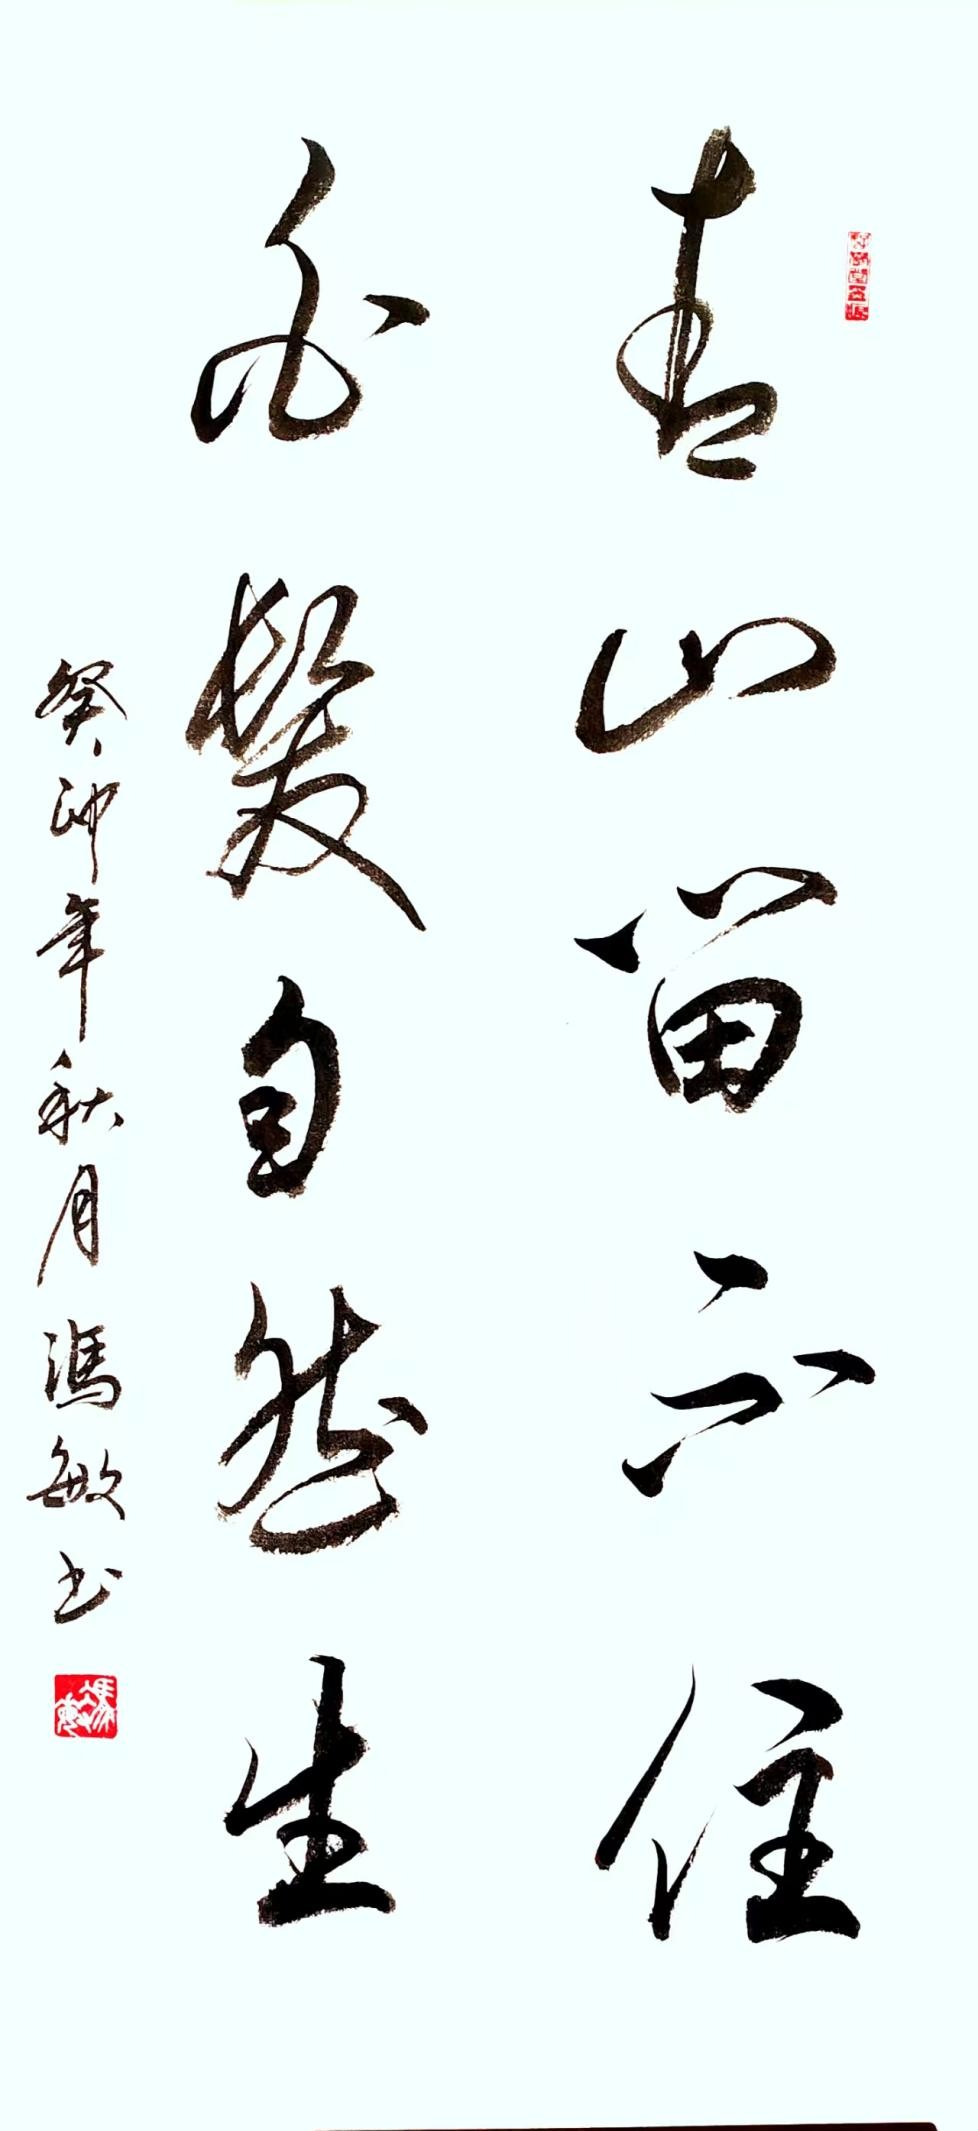 青山留不住
白髮自然生
癸卯年秋月馮敏书